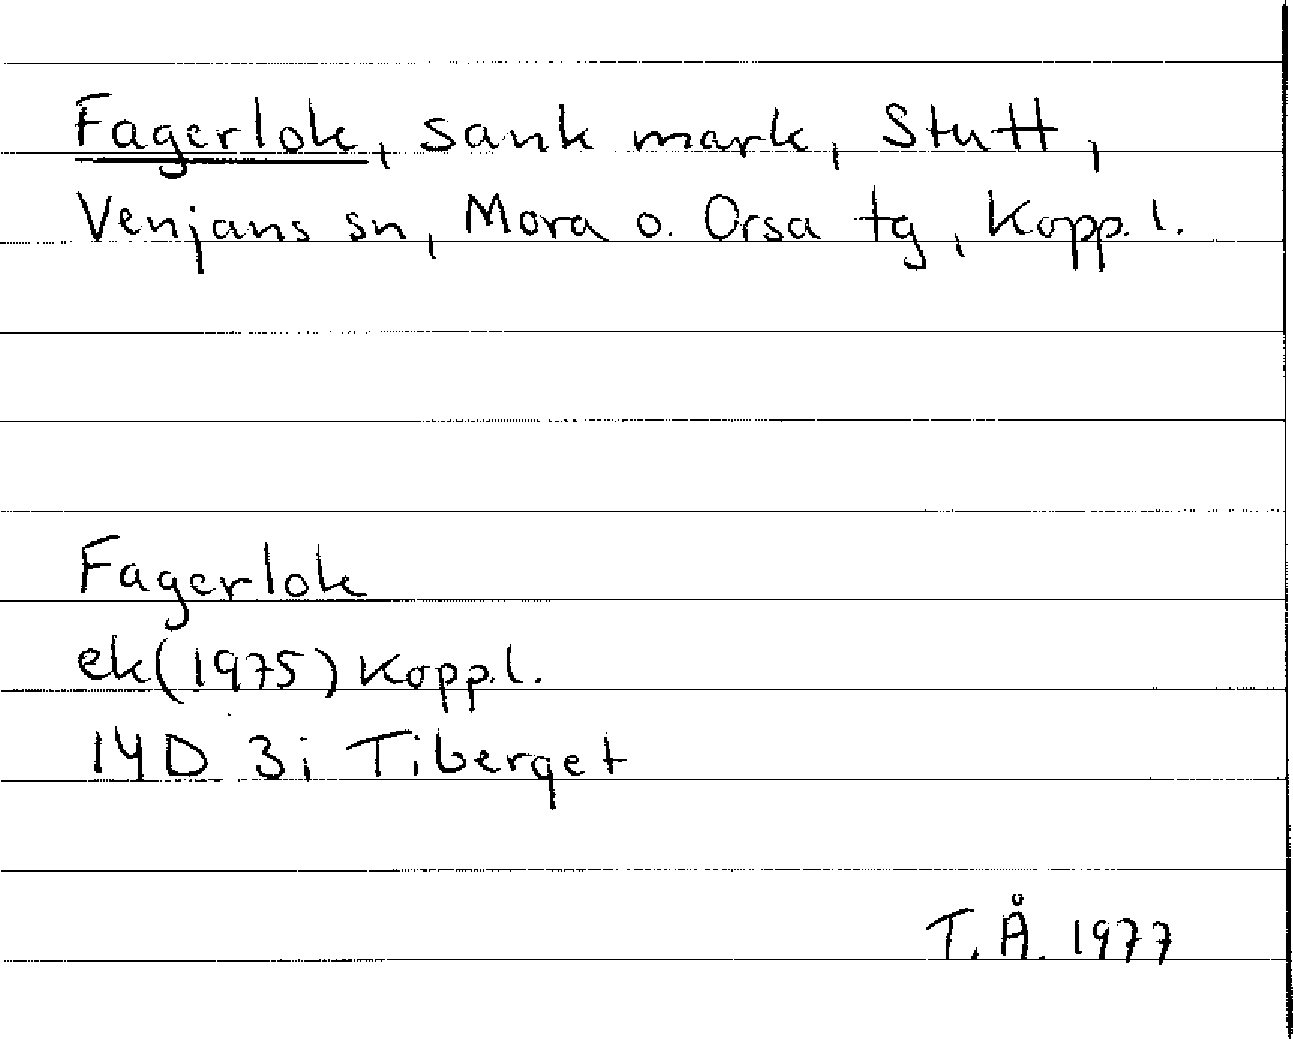 Fagerlok, sank mark, Stutt,
Venjans sn, Mora o. Orsa tg, Kopp. l.
Fagerlok
ek(1975) Kopp.l.
14D 3i Tiberget
T.Å. 1977